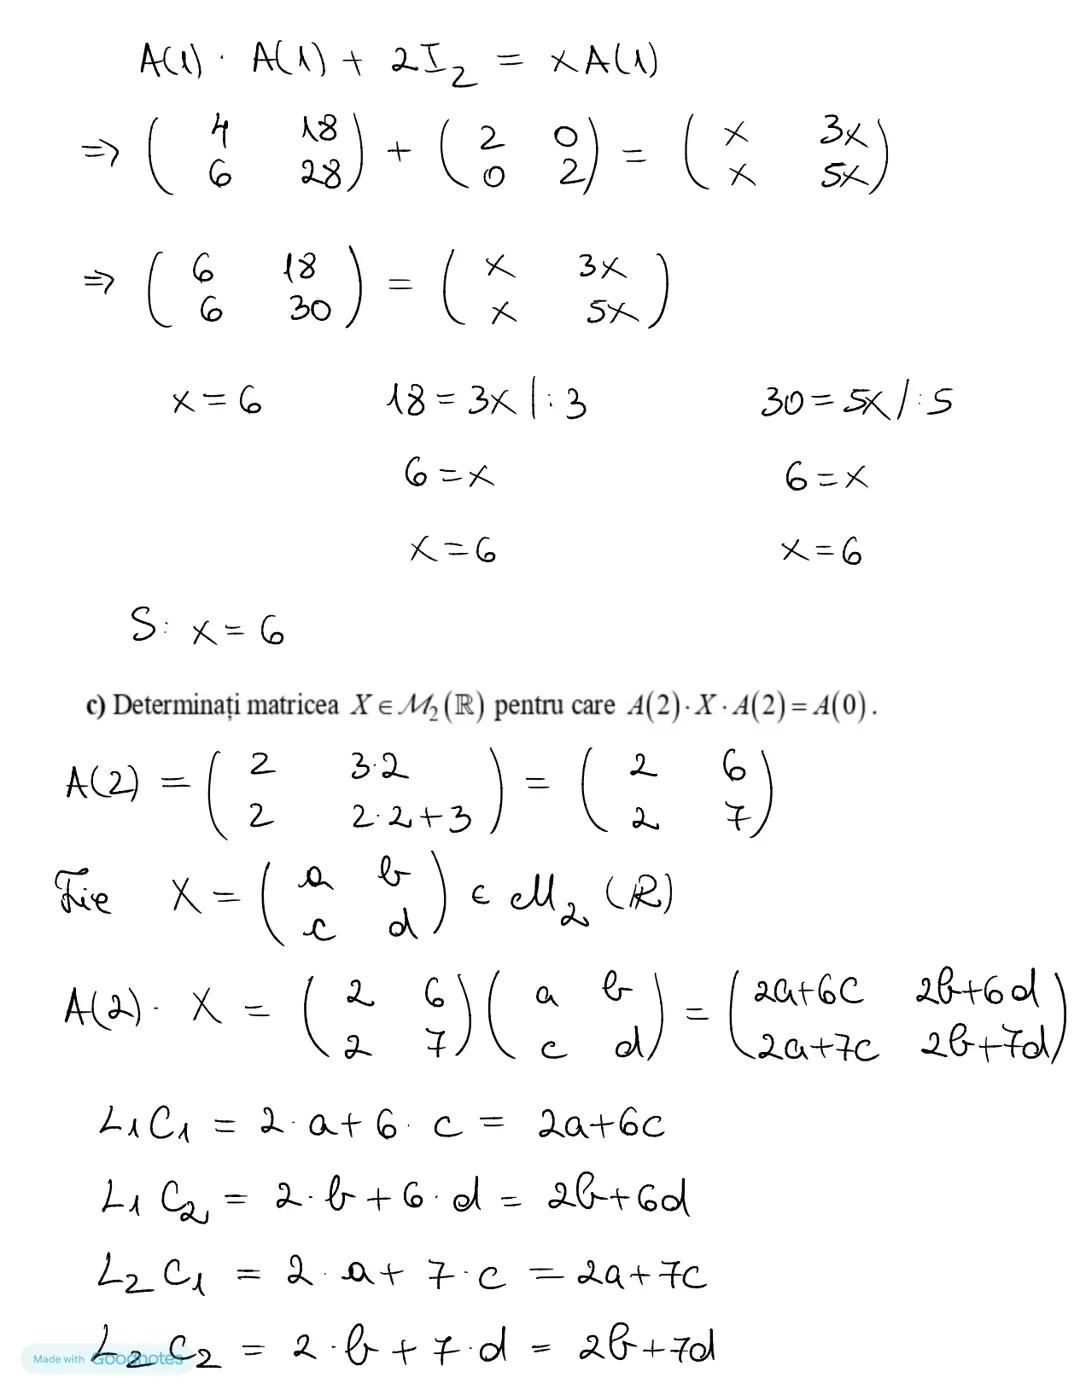 A(1) · A(1) + 2I₂ = xA(1)
⇒ ( 4 18 ; 6 28 ) + ( 2 0 ; 0 2 ) = ( x 3x ; x 5x )
⇒ ( 6 18 ; 6 30 ) = ( x 3x ; x 5x )
x = 6 18 = 3x |:3 30 = 5x /:5
6 = x 6 = x
x = 6 x = 6
S: x = 6
c) Determinați matricea X ∈ ℳ₂(ℝ) pentru care A(2)·X·A(2) = A(0).
A(2) = ( 2 3·2 ; 2 2·2+3 ) = ( 2 6 ; 2 7 )
Fie X = ( a b ; c d ) ∈ ℳ₂ (ℝ)
A(2) · X = ( 2 6 ; 2 7 ) ( a b ; c d ) = ( 2a+6c 2b+6d ; 2a+7c 2b+7d )
L₁C₁ = 2·a + 6·c = 2a+6c
L₁C₂ = 2·b + 6·d = 2b+6d
L₂C₁ = 2·a + 7·c = 2a+7c
L₂C₂ = 2·b + 7·d = 2b+7d
Made with Goodnotes